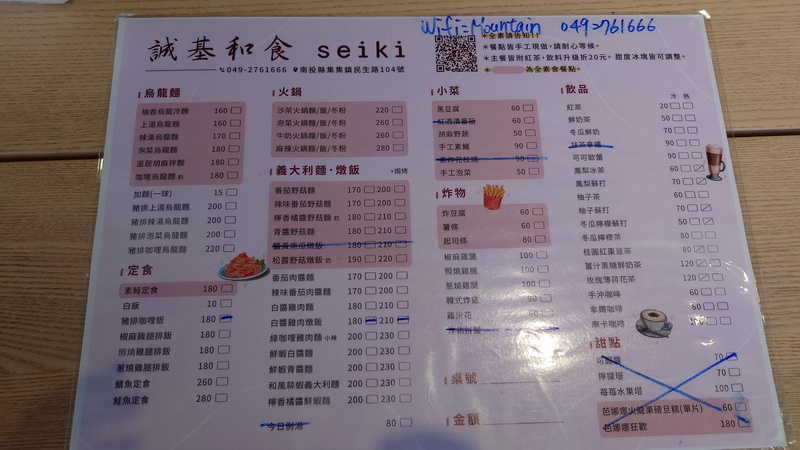 Wifi=Mountain 049-2761666
誠基和食 seiki
049-2761666 南投縣集集鎮民生路104號
＊全素請告知！！
＊餐點皆手工現做，請耐心等候。
＊主餐皆附紅茶，飲料升級折20元。甜度冰塊皆可調整。
為全素食餐點。
烏龍麵
柚香烏龍冷麵 160
上湯烏龍麵 160
辣湯烏龍麵 170
泡菜烏龍麵 180
溫蔬胡麻拌麵 180
咖哩烏龍麵 奶 180
加麵(一球) 15
豬排上湯烏龍麵 200
豬排辣湯烏龍麵 200
豬排泡菜烏龍麵 200
豬排咖哩烏龍麵 220
定食
素鰻定食 180
白飯 10
豬排咖哩飯 180
椒麻雞腿排飯 180
照燒雞腿排飯 180
蔥燒雞腿排飯 180
鯖魚定食 260
鮭魚定食 280
火鍋
沙茶火鍋麵/飯/冬粉 220
泡菜火鍋麵/飯/冬粉 260
牛奶火鍋麵/飯/冬粉 260
麻辣火鍋麵/飯/冬粉 280
義大利麵・燉飯 +焗烤
番茄野菇麵 170 200
辣味番茄野菇麵 170 200
檸香橘醬野菇麵 奶 180 210
青醬野菇麵 180 210
薑黃南瓜燉飯 180 210
松露野菇燉飯 奶 190 220
番茄肉醬麵 170 200
辣味番茄肉醬麵 170 200
白醬雞肉麵 180 210
白醬雞肉燉飯 180 210
綠咖哩雞肉麵 小辣 200 230
鮮蝦白醬麵 200 230
鮮蝦青醬麵 200 230
和風蒜蝦義大利麵 200 230
檸香橘醬鮮蝦麵 200 230
今日例湯 80
小菜
黑豆腐 60
紅酒漬番茄 60
胡麻野蔬 50
手工素鰻 90
素炸花枝燒 90
手工泡菜 50
炸物
炸豆腐 60
薯條 60
起司條 80
椒麻雞腿 100
照燒雞腿 100
蔥燒雞腿 100
韓式炸雞 90
雞米花
炸物拼盤
桌號
金額
飲品
冷 熱
紅茶 20
鮮奶茶 50
冬瓜鮮奶 70
抹茶拿鐵 90
可可歐蕾 90
鳳梨冰茶 60
鳳梨蘇打 70
柚子茶 60
柚子蘇打 70
冬瓜檸檬蘇打 50
冬瓜檸檬茶 80
桂圓紅棗薑茶 80
薑汁黑糖鮮奶茶 120
玫瑰薄荷花茶 120
手沖咖啡 60
拿鐵咖啡 80
摩卡咖啡
甜點
可麗露 70
檸檬塔 70
莓莓水果塔 100
芭娜娜火龍果磅旦糕(單片) 60
芭娜娜狂歡 180